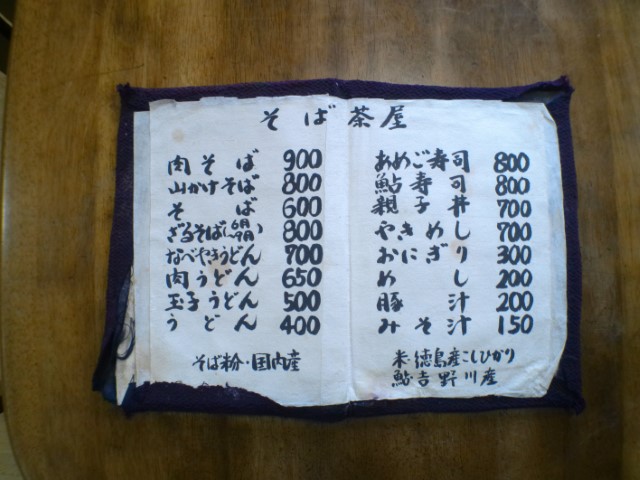 そば茶屋
肉そば 900
山かけそば 800
そば 600
ざるそば(6月~9月) 800
なべやきうどん 700
肉うどん 650
玉子うどん 500
うどん 400
そば粉・国内産
あめご寿司 800
鮎寿司 800
親子丼 700
やきめし 700
おにぎり 300
めし 200
豚汁 200
みそ汁 150
米・徳島産こしひかり
鮎吉野川産